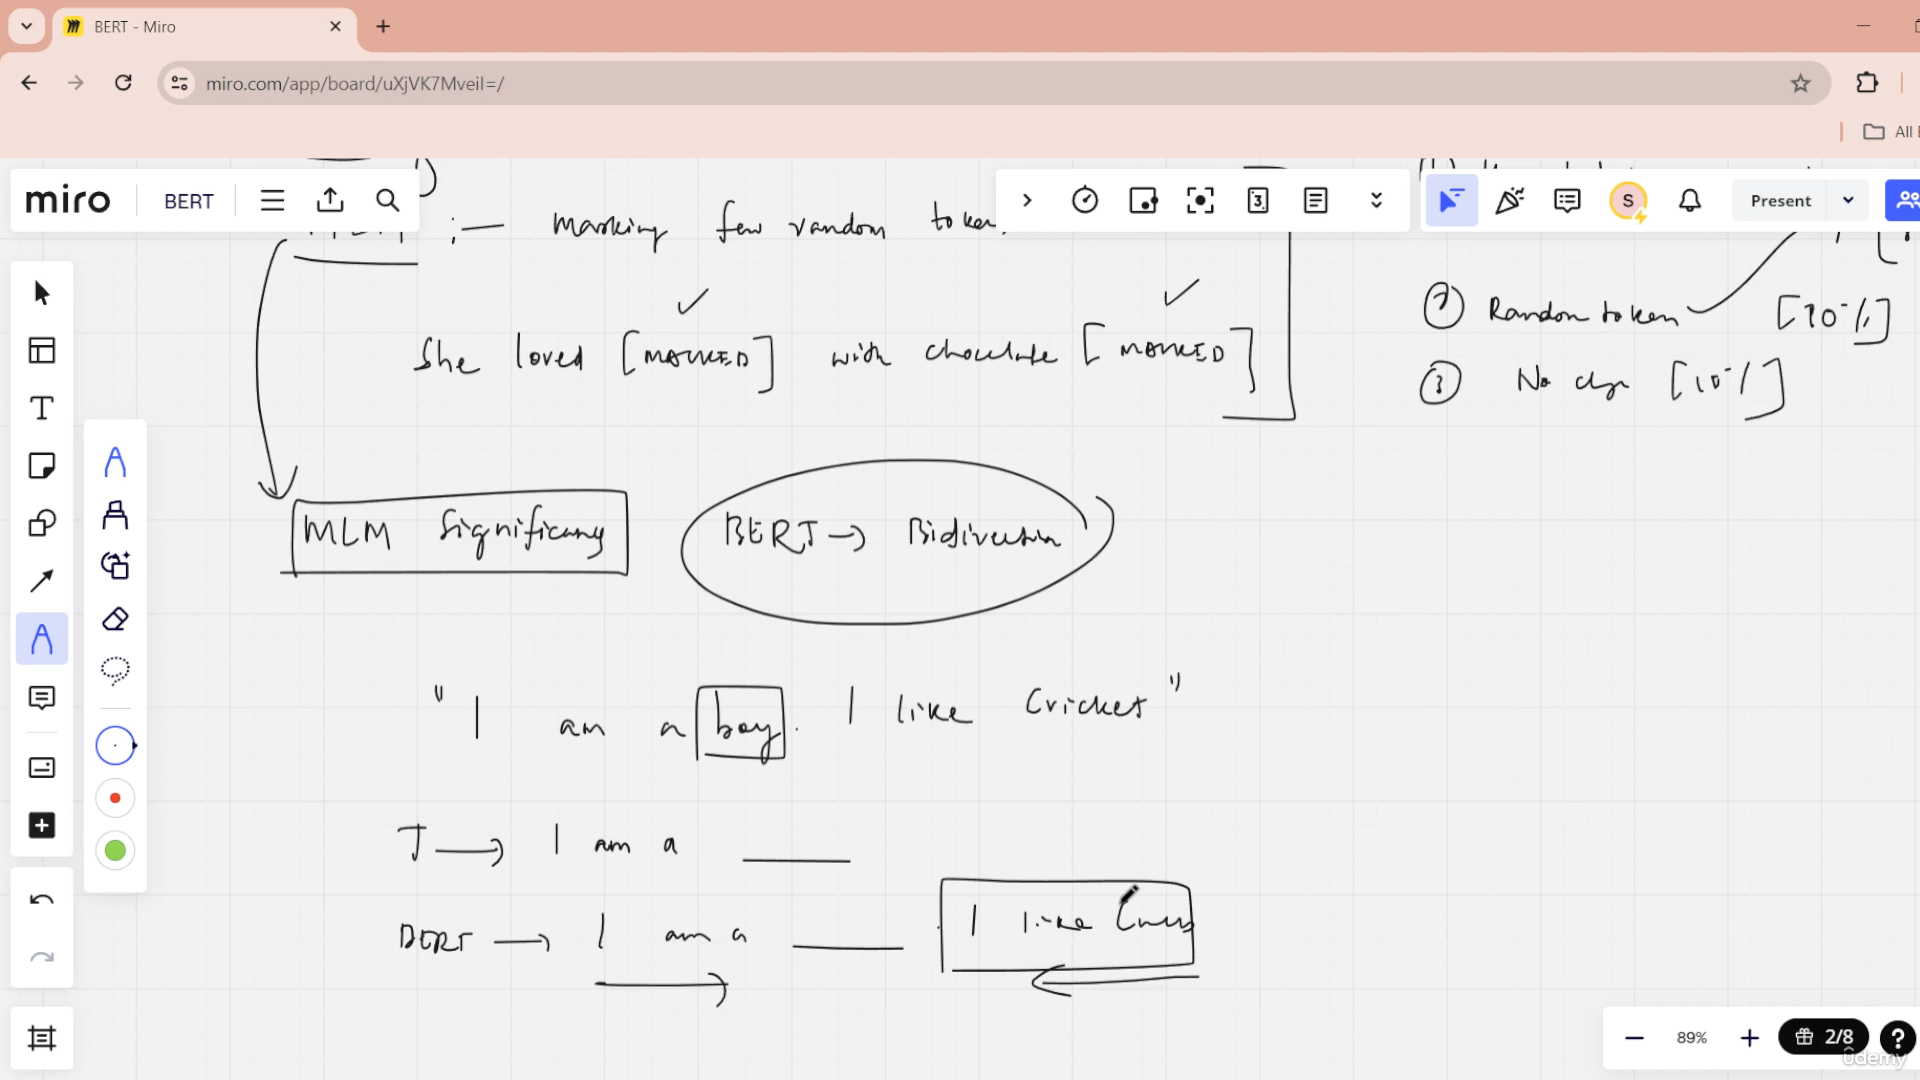 BERT - Miro
miro.com/app/board/uXjVK7Mveil=/
All
miro BERT
3
S
Present
:— Masking few random token
She loved [MASKED] with chocolate [MASKED]
② Random token [10%]
③ No chge [10%]
MLM Significancy
BERT → Bidirection
" I am a boy. I like Cricket "
T → I am a ____
BERT → I am a ____. I like
89%
2/8
?
ûdemy